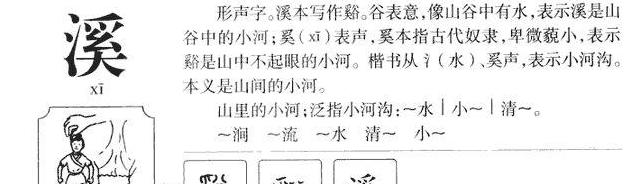 溪
xī
形声字。溪本写作谿。谷表意,像山谷中有水,表示溪是山
谷中的小河;奚(xī)表声,奚本指古代奴隶,卑微藐小,表示
谿是山中不起眼的小河。楷书从氵(水)、奚声,表示小河沟。
本义是山间的小河。
山里的小河;泛指小河沟:~水|小~|清~。
~涧 ~流 ~水 清~ 小~